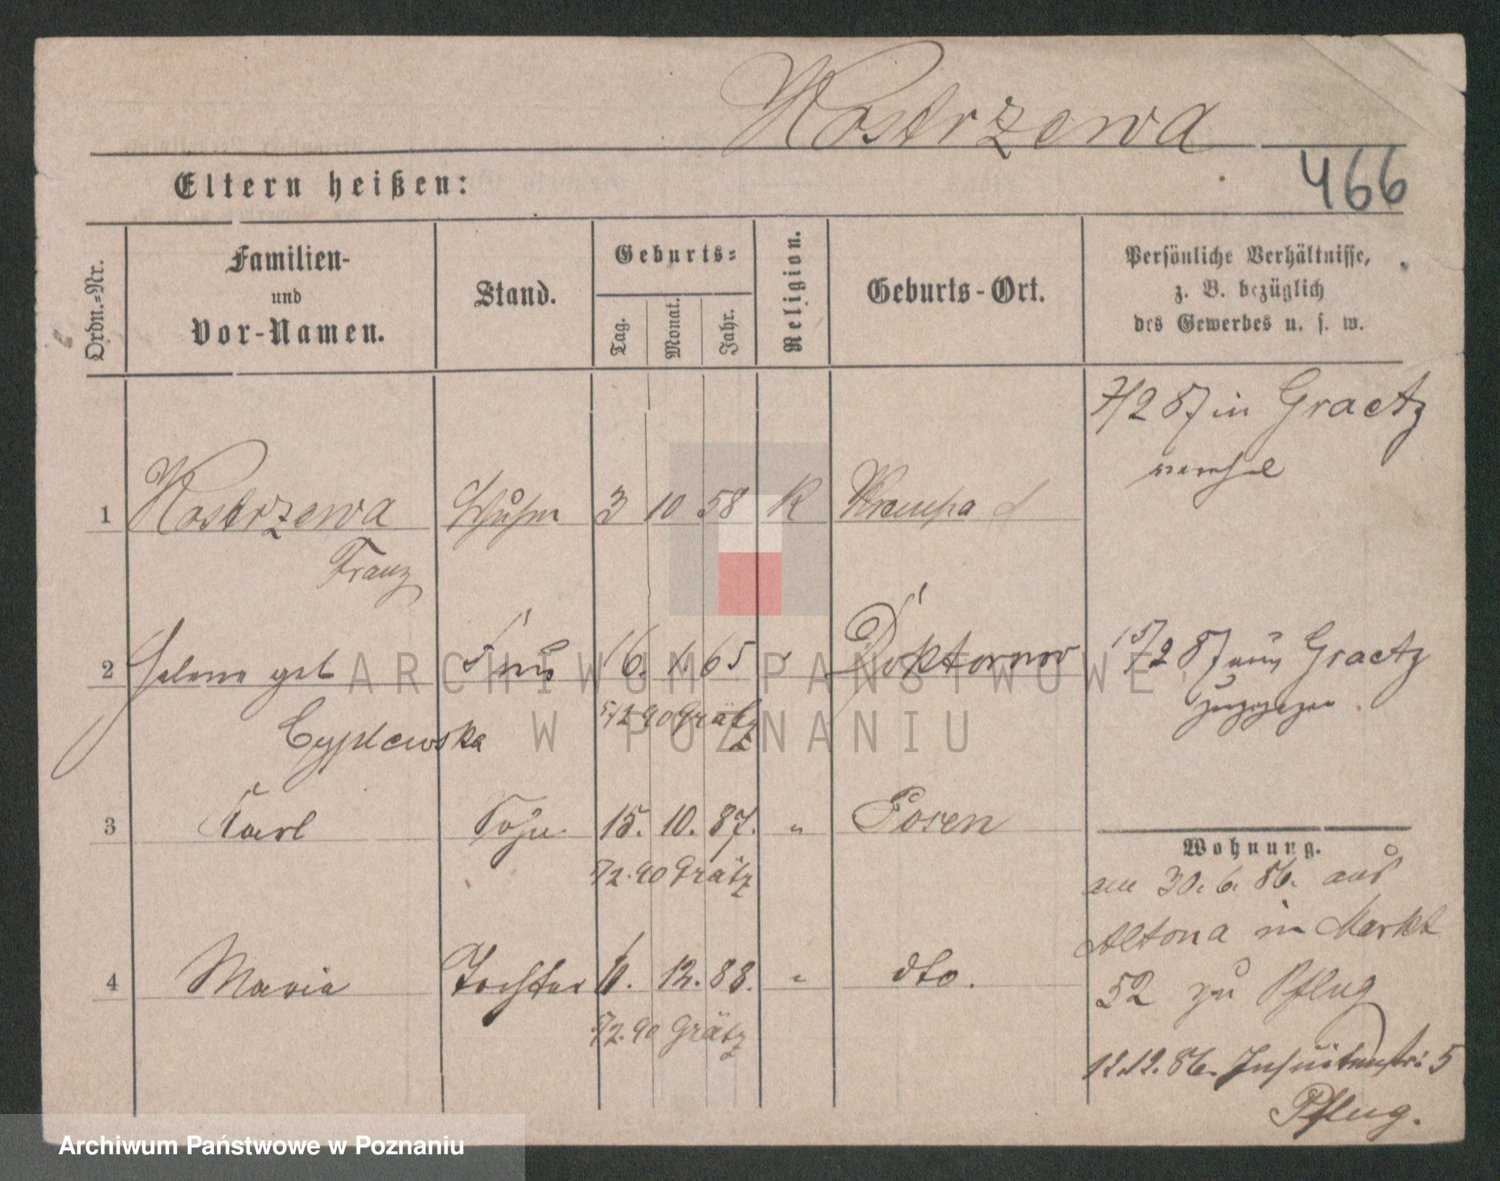 Kostrzewa
466
Eltern heißen:
Ordn.-Nr.
Familien-
und
Vor-Namen.
Stand.
Geburts-
Tag.
Monat.
Jahr.
Religion.
Geburts-Ort.
Persönliche Verhältnisse,
z. B. bezüglich
des Gewerbes u. s. w.
7/2 87 in Graetz
verehel
1 Kostrzewa 3 10 58 K Krempa
Franz
2 Helene geb Frau 16. 1. 65 " Doktorowo
15/2 87 aus Graetz
zugezogen
5/2 90 Grätz
3 Karl Sohn 15. 10. 87. " Posen
5/2. 90 Grätz
4 Maria Tochter 11. 12. 88. " dto.
5/2. 90 Grätz
Wohnung.
am 30. 6. 86. aus
Altona in Markt
52 zu Pflug
12.12. 86. Jesuitenstr: 5
Pflug.
ARCHIWUM PAŃSTWOWE
W POZNANIU
Archiwum Państwowe w Poznaniu